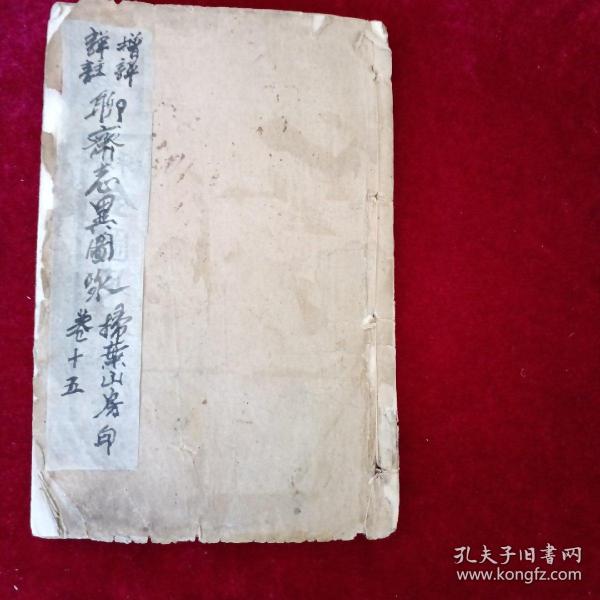 增評
詳註
聊齋志異圖咏
掃葉山房印
卷十五
孔夫子旧書网
www.kongfz.com